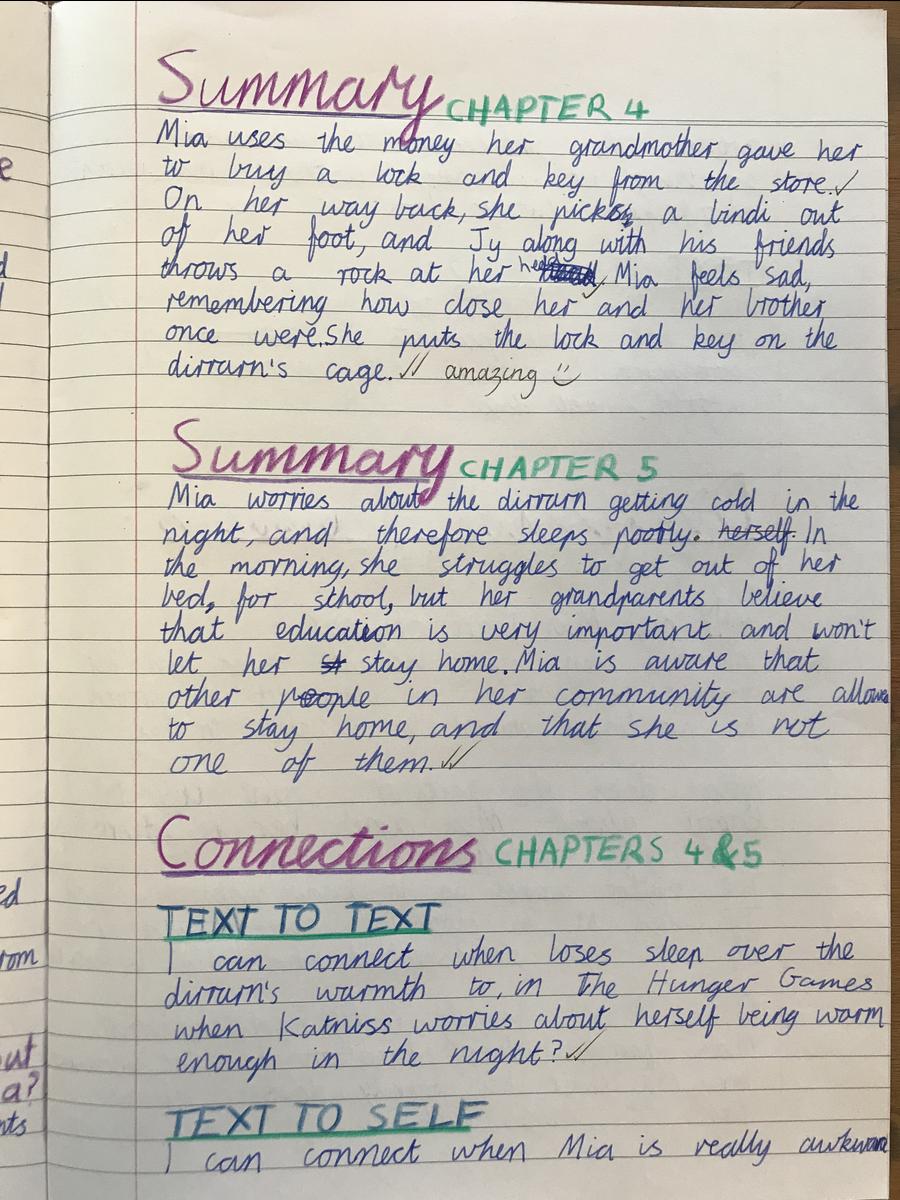 Summary CHAPTER 4
Mia uses the money her grandmother gave her
to buy a lock and key from the store.✓
On her way back, she picks a bindi out
of her foot, and Jy along with his friends
throws a rock at her head. Mia feels sad,
remembering how close her and her brother
once were. She puts the lock and key on the
dirrarn's cage.✓✓ amazing ☺
Summary CHAPTER 5
Mia worries about the dirrarn getting cold in the
night, and therefore sleeps poorly. herself. In
the morning, she struggles to get out of her
bed, for school, but her grandparents believe
that education is very important and won't
let her st stay home. Mia is aware that
other people in her community are allowed
to stay home, and that she is not
one of them.✓✓
Connections CHAPTERS 4 & 5
TEXT TO TEXT
I can connect when loses sleep over the
dirrarn's warmth to, in The Hunger Games
when Katniss worries about herself being warm
enough in the night?✓✓
TEXT TO SELF
I can connect when Mia is really awkward